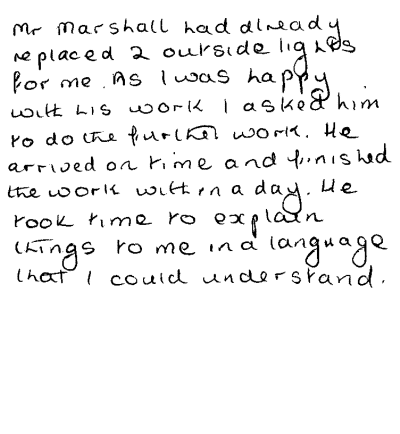 Mr Marshall had already
replaced 2 outside lights
for me. As I was happy
with his work I asked him
to do the further work. He
arrived on time and finished
the work within a day. He
took time to explain
things to me in a language
that I could understand.